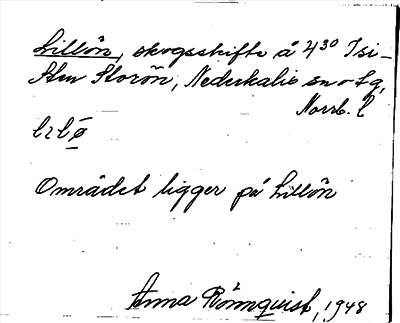 Lillön, skogsskifte å 4³⁰ Isi-
sten Storön, Nederkalix sn o tg,
Norrb. l
lɩlø̄
Området ligger på Lillön
Anna Rönnquist, 1948